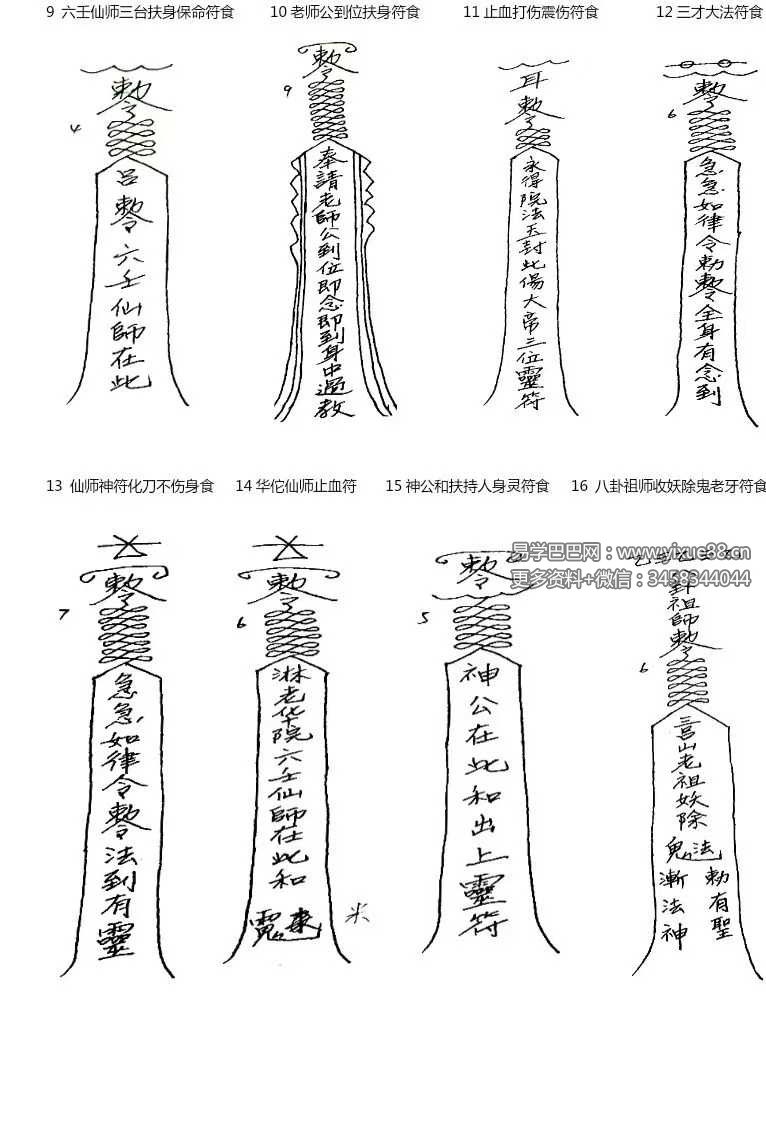 9 六壬仙师三台扶身保命符食
10 老师公到位扶身符食
11 止血打伤震伤符食
12 三才大法符食
敕令
4
呂敕令六壬仙師在此
敕令
9
奉請老師公到位即念即到身中過教
耳敕令
永得院法玉封此傷大帝三位靈符
敕令
6
急急如律令勅敕令全身有念到
13 仙师神符化刀不伤身食
14 华佗仙师止血符
15 神公和扶持人身灵符食
16 八卦祖师收妖除鬼老牙符食
敕令
7
急急如律令敕令法到有靈
敕令
6
淋老华院六壬仙師在此和
米
敕令
5
神公在此和出上靈符
祖師敕令
6
山老祖妖除
鬼法
勅有聖
漸法神
易学巴巴网：www.yixue88.cn
更多资料+微信：3458344044